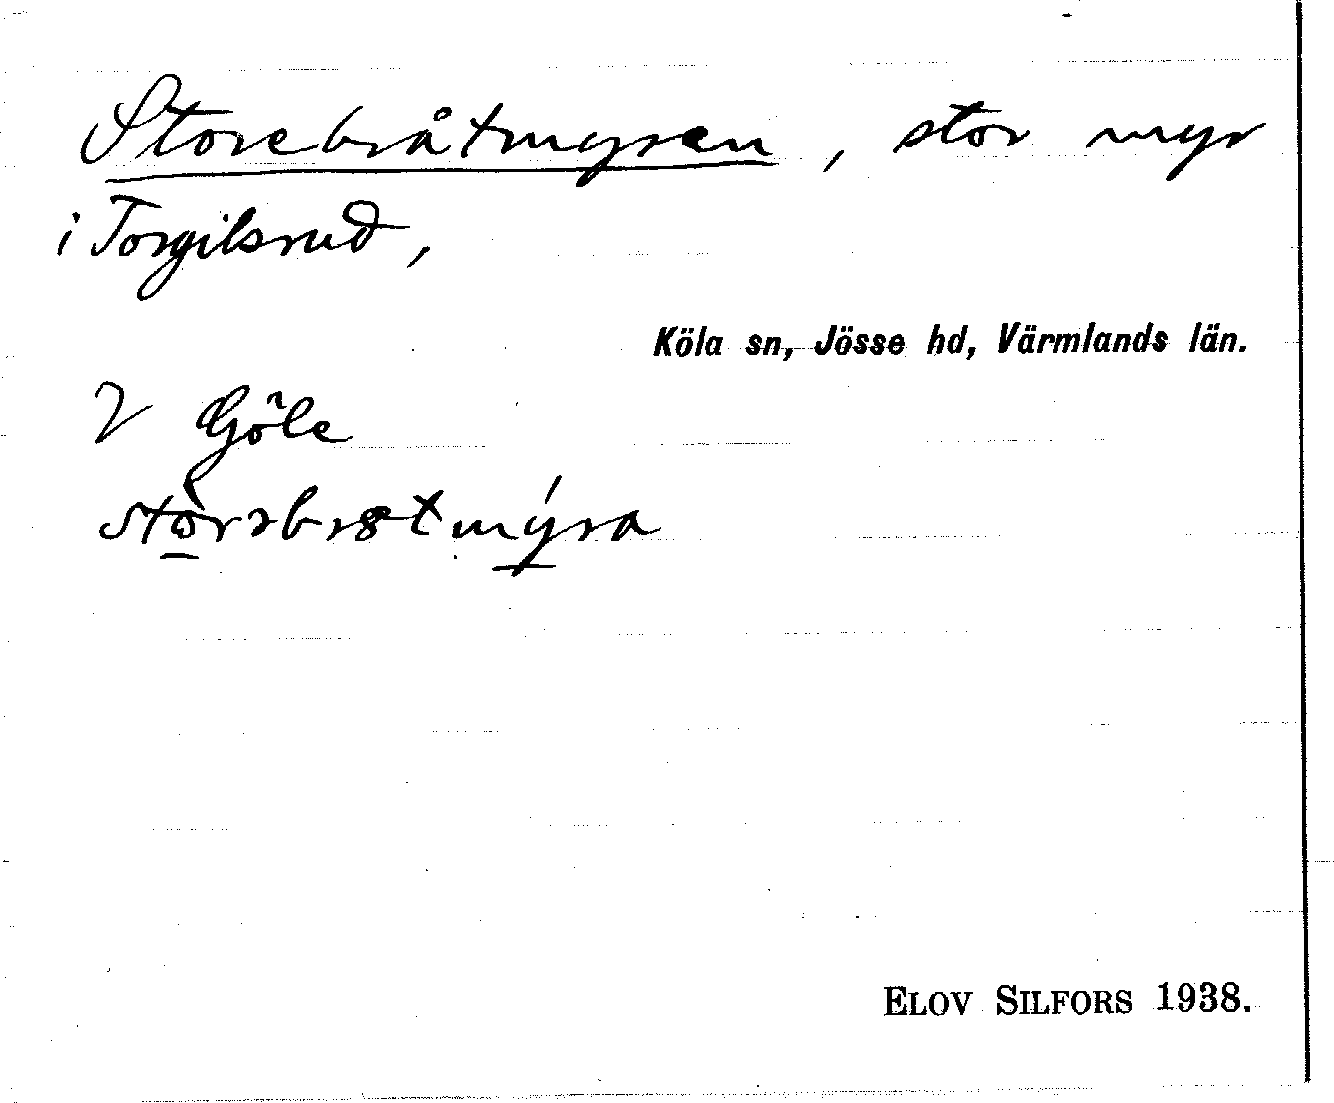 Storebråtmyren, stor myr
i Torgilsrud,
Köla sn, Jösse hd, Värmlands län.
V Göle
ELOV SILFORS 1938.